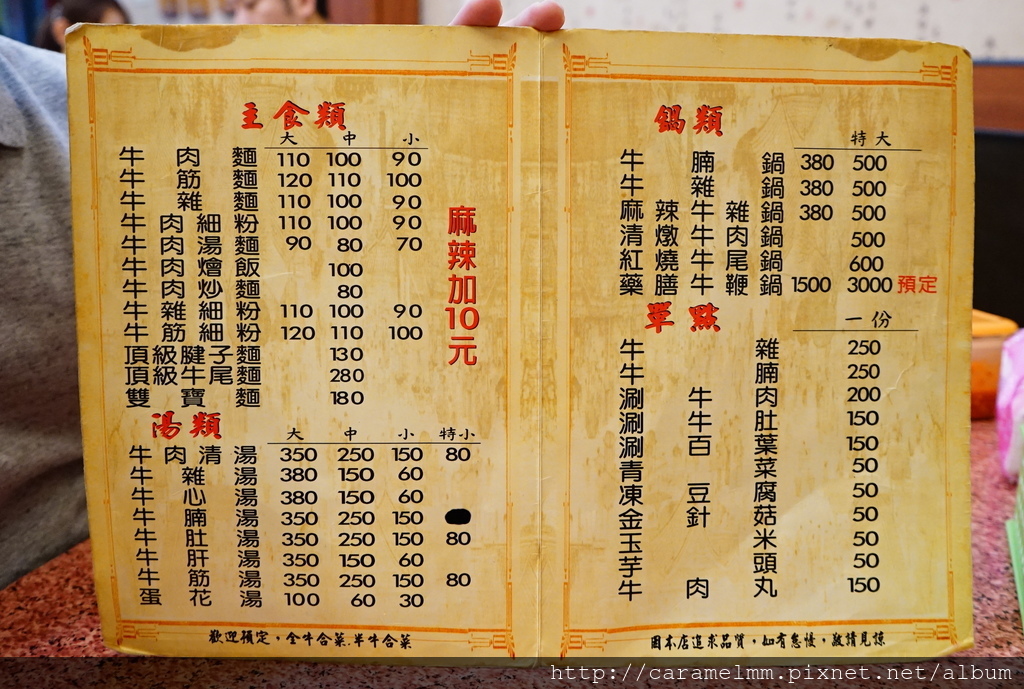 主食類
大 中 小
牛肉麵 110 100 90
牛筋麵 120 110 100
牛雜麵 110 100 90
牛肉細粉 110 100 90
牛肉湯麵 90 80 70
牛肉燴飯 100
牛肉炒麵 80
牛雜細粉 110 100 90
牛筋細粉 120 110 100
頂級腱子麵 130
頂級牛尾麵 280
雙寶麵 180
麻辣加10元
湯類
大 中 小 特小
牛肉清湯 350 250 150 80
牛雜湯 380 150 60
牛心湯 380 150 60
牛腩湯 350 250 150
牛肚湯 350 250 150 80
牛肝湯 350 150 60
牛筋湯 350 250 150 80
蛋花湯 100 60 30
歡迎預定,全牛合菜.半牛合菜
鍋類
特大
牛腩鍋 380 500
牛雜鍋 380 500
麻辣牛雜鍋 380 500
清燉牛肉鍋 500
紅燒牛尾鍋 600
藥膳牛鞭鍋 1500 3000 預定
單點
一份
牛雜 250
牛腩 250
涮牛肉 200
涮牛肚 150
涮百葉 150
青菜 50
凍豆腐 50
金針菇 50
玉米 50
芋頭 50
牛肉丸 150
因本店追求品質,如有怠慢,敬請見諒
http://caramelmm.pixnet.net/album